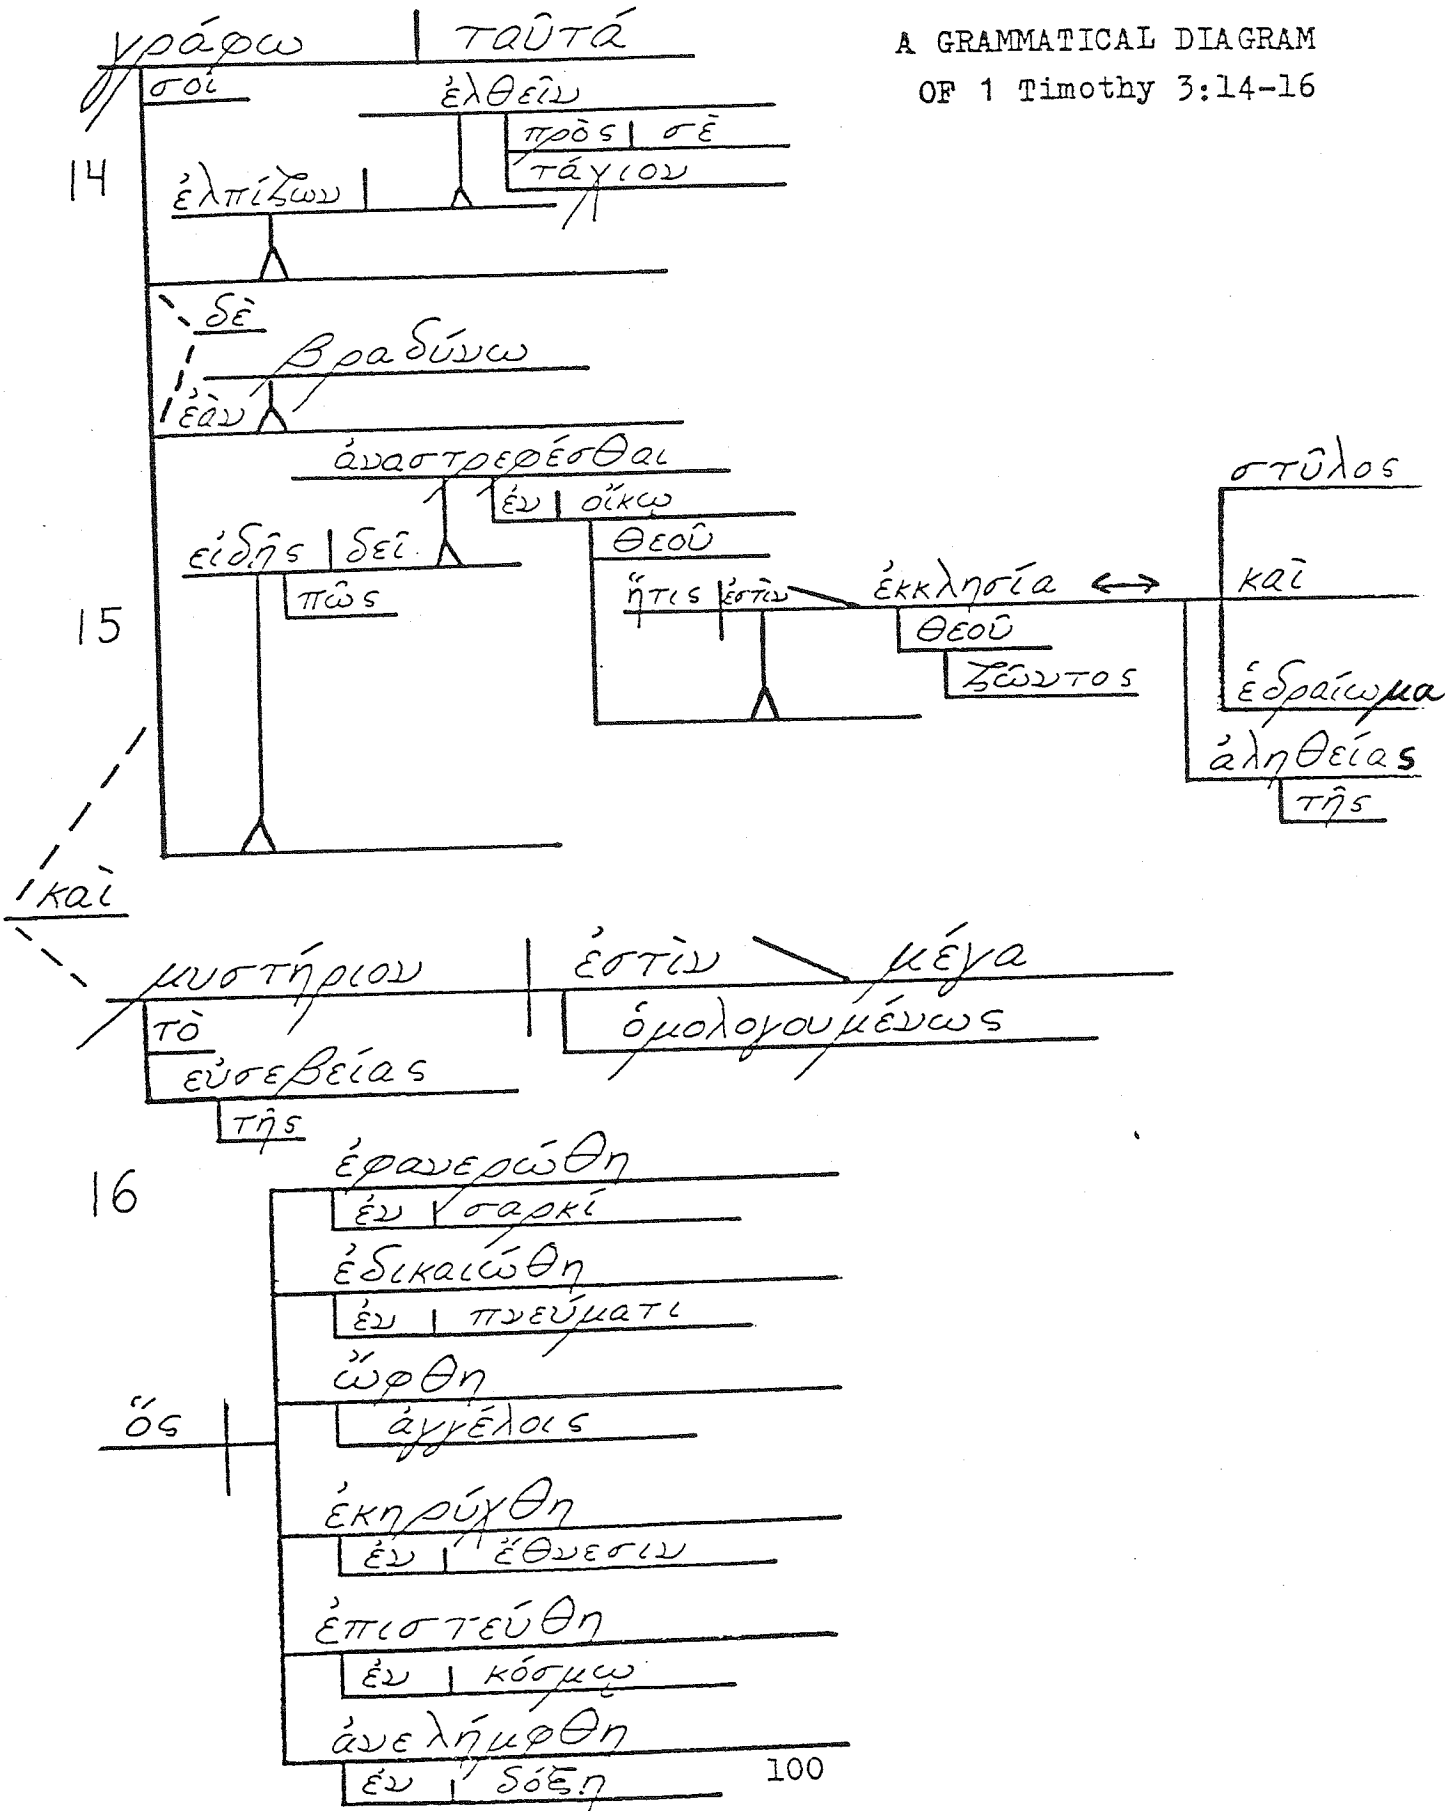 A GRAMMATICAL DIAGRAM
OF 1 Timothy 3:14-16
γράφω ταῦτά
σοι
ἐλθεῖν
πρὸς σὲ
τάχιον
14
ἐλπίζων
δὲ
βραδύνω
ἐὰν
ἀναστρεφέσθαι
ἐν οἴκῳ
θεοῦ
εἰδῇς δεῖ
πῶς
ἥτις ἐστὶν ἐκκλησία ↔ καὶ
στῦλος
θεοῦ
ζῶντος
15
ἑδραίωμα
ἀληθείας
τῆς
καὶ
μυστήριον ἐστὶν μέγα
τὸ
ὁμολογουμένως
εὐσεβείας
τῆς
16
ἐφανερώθη
ἐν σαρκί
ἐδικαιώθη
ἐν πνεύματι
ὤφθη
ὅς
ἀγγέλοις
ἐκηρύχθη
ἐν ἔθνεσιν
ἐπιστεύθη
ἐν κόσμῳ
ἀνελήμφθη
ἐν δόξη
100